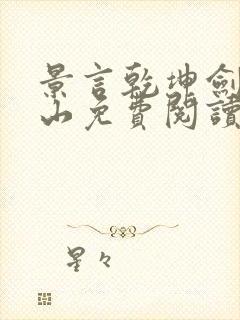 景言乾坤劍
山免費閱讀
星々